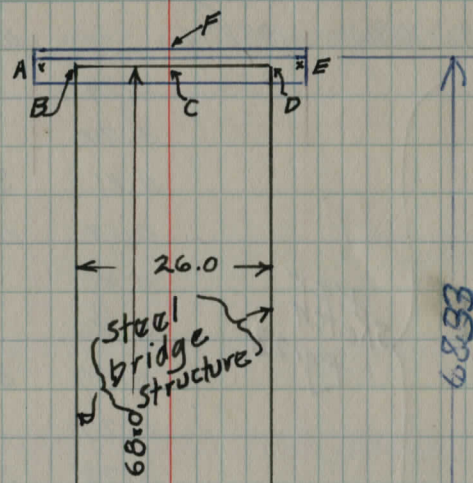 F
A
x
x
E
B
C
D
26.0
steel
bridge
structure
68.0